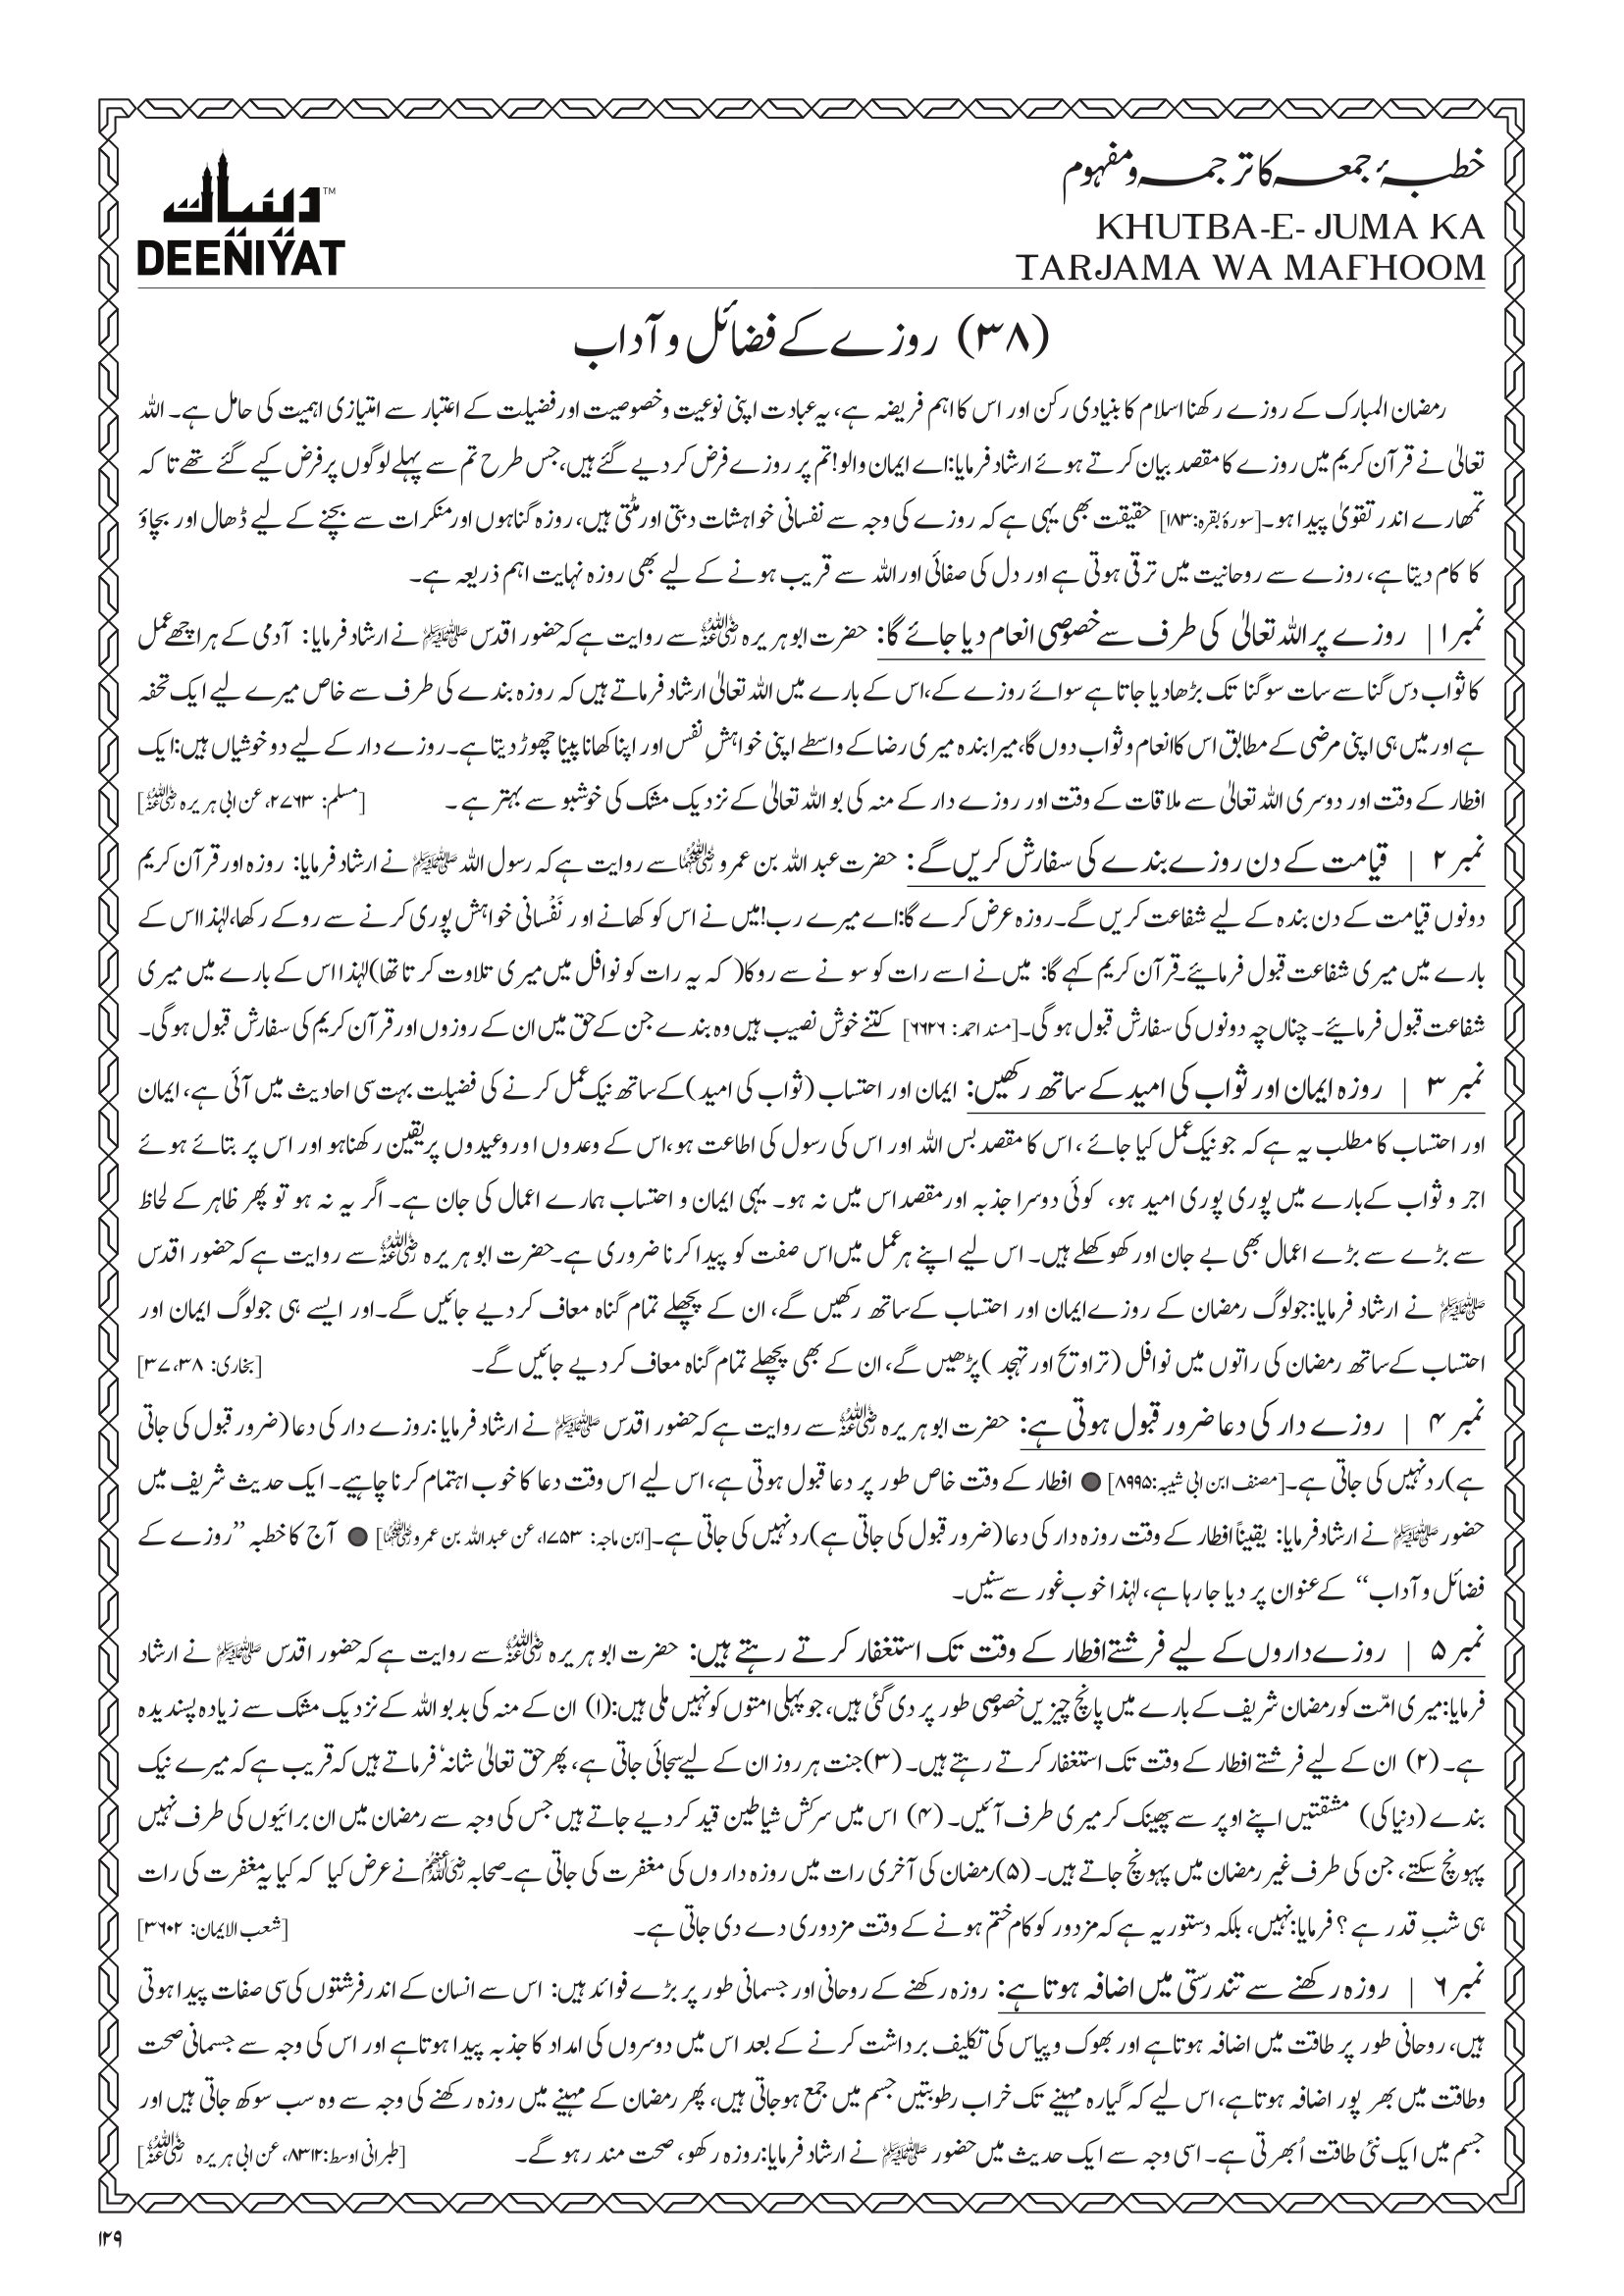 خطبۂ جمعہ کا ترجمہ و مفہوم
دینیات™
DEENIYAT
KHUTBA-E- JUMA KA
TARJAMA WA MAFHOOM
(۳۸) روزے کے فضائل و آداب
رمضان المبارک کے روزے رکھنا اسلام کا بنیادی رکن اور اس کا اہم فریضہ ہے، یہ عبادت اپنی نوعیت و خصوصیت اور فضیلت کے اعتبار سے امتیازی اہمیت کی حامل ہے۔ اللہ
تعالیٰ نے قرآن کریم میں روزے کا مقصد بیان کرتے ہوئے ارشاد فرمایا: اے ایمان والو! تم پر روزے فرض کر دیے گئے ہیں، جس طرح تم سے پہلے لوگوں پر فرض کیے گئے تھے تا کہ
تمھارے اندر تقویٰ پیدا ہو۔ [سورۂ بقرہ: ۱۸۳] حقیقت بھی یہی ہے کہ روزے کی وجہ سے نفسانی خواہشات دبتی اور مٹتی ہیں، روزہ گناہوں اور منکرات سے بچنے کے لیے ڈھال اور بچاؤ
کا کام دیتا ہے، روزے سے روحانیت میں ترقی ہوتی ہے اور دل کی صفائی اور اللہ سے قریب ہونے کے لیے بھی روزہ نہایت اہم ذریعہ ہے۔
نمبر ۱ | روزے پر اللہ تعالیٰ کی طرف سے خصوصی انعام دیا جائے گا: حضرت ابو ہریرہ رضی اللہ عنہ سے روایت ہے کہ حضور اقدس ﷺ نے ارشاد فرمایا: آدمی کے ہر اچھے عمل
کا ثواب دس گنا سے سات سو گنا تک بڑھا دیا جاتا ہے سوائے روزے کے، اس کے بارے میں اللہ تعالیٰ ارشاد فرماتے ہیں کہ روزہ بندے کی طرف سے خاص میرے لیے ایک تحفہ
ہے اور میں ہی اپنی مرضی کے مطابق اس کا انعام و ثواب دوں گا، میرا بندہ میری رضا کے واسطے اپنی خواہشِ نفس اور اپنا کھانا پینا چھوڑ دیتا ہے۔ روزے دار کے لیے دو خوشیاں ہیں: ایک
افطار کے وقت اور دوسری اللہ تعالیٰ سے ملاقات کے وقت اور روزے دار کے منہ کی بو اللہ تعالیٰ کے نزدیک مشک کی خوشبو سے بہتر ہے۔ [مسلم: ۲۷۶۳، عن ابی ہریرہ رضی اللہ عنہ]
نمبر ۲ | قیامت کے دن روزے بندے کی سفارش کریں گے: حضرت عبد اللہ بن عمرو رضی اللہ عنہما سے روایت ہے کہ رسول اللہ ﷺ نے ارشاد فرمایا: روزہ اور قرآن کریم
دونوں قیامت کے دن بندہ کے لیے شفاعت کریں گے۔ روزہ عرض کرے گا: اے میرے رب! میں نے اس کو کھانے اور نَفْسانی خواہش پوری کرنے سے روکے رکھا، لہٰذا اس کے
بارے میں میری شفاعت قبول فرمائیے۔ قرآن کریم کہے گا: میں نے اسے رات کو سونے سے روکا (کہ یہ رات کو نوافل میں میری تلاوت کرتا تھا) لہٰذا اس کے بارے میں میری
شفاعت قبول فرمائیے۔ چناں چہ دونوں کی سفارش قبول ہو گی۔ [مسند احمد: ۶۶۲۶] کتنے خوش نصیب ہیں وہ بندے جن کے حق میں ان کے روزوں اور قرآن کریم کی سفارش قبول ہو گی۔
نمبر ۳ | روزہ ایمان اور ثواب کی امید کے ساتھ رکھیں: ایمان اور احتساب (ثواب کی امید) کے ساتھ نیک عمل کرنے کی فضیلت بہت سی احادیث میں آئی ہے، ایمان
اور احتساب کا مطلب یہ ہے کہ جو نیک عمل کیا جائے، اس کا مقصد بس اللہ اور اس کی رسول کی اطاعت ہو، اس کے وعدوں اور وعیدوں پر یقین رکھنا ہو اور اس پر بتائے ہوئے
اجر و ثواب کے بارے میں پوری پوری امید ہو، کوئی دوسرا جذبہ اور مقصد اس میں نہ ہو۔ یہی ایمان و احتساب ہمارے اعمال کی جان ہے۔ اگر یہ نہ ہو تو پھر ظاہر کے لحاظ
سے بڑے سے بڑے اعمال بھی بے جان اور کھوکھلے ہیں۔ اس لیے اپنے ہر عمل میں اس صفت کو پیدا کرنا ضروری ہے۔ حضرت ابو ہریرہ رضی اللہ عنہ سے روایت ہے کہ حضور اقدس
ﷺ نے ارشاد فرمایا: جو لوگ رمضان کے روزے ایمان اور احتساب کے ساتھ رکھیں گے، ان کے پچھلے تمام گناہ معاف کر دیے جائیں گے۔ اور ایسے ہی جو لوگ ایمان اور
احتساب کے ساتھ رمضان کی راتوں میں نوافل (تراویح اور تہجد) پڑھیں گے، ان کے بھی پچھلے تمام گناہ معاف کر دیے جائیں گے۔ [بخاری: ۳۷،۳۸]
نمبر ۴ | روزے دار کی دعا ضرور قبول ہوتی ہے: حضرت ابو ہریرہ رضی اللہ عنہ سے روایت ہے کہ حضور اقدس ﷺ نے ارشاد فرمایا: روزے دار کی دعا (ضرور قبول کی جاتی
ہے) رد نہیں کی جاتی ہے۔ [مصنف ابن ابی شیبہ: ۸۹۹۵] ● افطار کے وقت خاص طور پر دعا قبول ہوتی ہے، اس لیے اس وقت دعا کا خوب اہتمام کرنا چاہیے۔ ایک حدیث شریف میں
حضور ﷺ نے ارشاد فرمایا: یقیناً افطار کے وقت روزہ دار کی دعا (ضرور قبول کی جاتی ہے) رد نہیں کی جاتی ہے۔ [ابن ماجہ: ۱۷۵۳، عن عبد اللہ بن عمرو رضی اللہ عنہما] ● آج کا خطبہ ”روزے کے
فضائل و آداب“ کے عنوان پر دیا جا رہا ہے، لہٰذا خوب غور سے سنیں۔
نمبر ۵ | روزے داروں کے لیے فرشتے افطار کے وقت تک استغفار کرتے رہتے ہیں: حضرت ابو ہریرہ رضی اللہ عنہ سے روایت ہے کہ حضور اقدس ﷺ نے ارشاد
فرمایا: میری امّت کو رمضان شریف کے بارے میں پانچ چیزیں خصوصی طور پر دی گئی ہیں، جو پہلی امتوں کو نہیں ملی ہیں: (۱) ان کے منہ کی بدبو اللہ کے نزدیک مشک سے زیادہ پسندیدہ
ہے۔ (۲) ان کے لیے فرشتے افطار کے وقت تک استغفار کرتے رہتے ہیں۔ (۳) جنت ہر روز ان کے لیے سجائی جاتی ہے، پھر حق تعالیٰ شانہٗ فرماتے ہیں کہ قریب ہے کہ میرے نیک
بندے (دنیا کی) مشقتیں اپنے اوپر سے پھینک کر میری طرف آئیں۔ (۴) اس میں سرکش شیاطین قید کر دیے جاتے ہیں جس کی وجہ سے رمضان میں ان برائیوں کی طرف نہیں
پہونچ سکتے، جن کی طرف غیر رمضان میں پہونچ جاتے ہیں۔ (۵) رمضان کی آخری رات میں روزہ داروں کی مغفرت کی جاتی ہے۔ صحابہ رضی اللہ عنہم نے عرض کیا کہ کیا یہ مغفرت کی رات
ہی شبِ قدر ہے؟ فرمایا: نہیں، بلکہ دستور یہ ہے کہ مزدور کو کام ختم ہونے کے وقت مزدوری دے دی جاتی ہے۔ [شعب الایمان: ۳۶۰۲]
نمبر ۶ | روزہ رکھنے سے تندرستی میں اضافہ ہوتا ہے: روزہ رکھنے کے روحانی اور جسمانی طور پر بڑے فوائد ہیں: اس سے انسان کے اندر فرشتوں کی سی صفات پیدا ہوتی
ہیں، روحانی طور پر طاقت میں اضافہ ہوتا ہے اور بھوک و پیاس کی تکلیف برداشت کرنے کے بعد اس میں دوسروں کی امداد کا جذبہ پیدا ہوتا ہے اور اس کی وجہ سے جسمانی صحت
وطاقت میں بھر پور اضافہ ہوتا ہے، اس لیے کہ گیارہ مہینے تک خراب رطوبتیں جسم میں جمع ہو جاتی ہیں، پھر رمضان کے مہینے میں روزہ رکھنے کی وجہ سے وہ سب سوکھ جاتی ہیں اور
جسم میں ایک نئی طاقت اُبھرتی ہے۔ اسی وجہ سے ایک حدیث میں حضور ﷺ نے ارشاد فرمایا: روزہ رکھو، صحت مند رہو گے۔ [طبرانی اوسط: ۸۳۱۲، عن ابی ہریرہ رضی اللہ عنہ]
۱۲۹